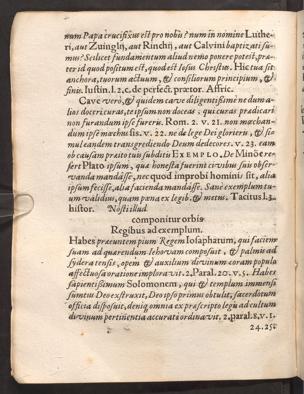 num Papa crucifixus est pro nobis? num in nomine Luthe-
ri, aut Zuinglij, aut Rinchij, aut Calvini baptizati su-
mus? Scilicet fundamentum aliud nemo ponere potest, præ-
ter id quod positum est, quod est Iesus Christus. Hic tua sit
anchora, tuorum actuum, & consiliorum principium, &
finis. Iustin. l. 2. c. de perfect. prætor. Affric.
Cave verò, & quidem cave diligentissimè ne dum a-
lios docere curas, te ipsum non doceas, qui curas prædicari
non furandum ipse fureris. Rom. 2. v. 21. non mœchan-
dum ipse mœchus sis. v. 22. ne de lege Dei glorieris, & si-
mul eandem transgrediendo Deum dedecores. v. 23. eam
ob causam præ toto tuis subditis EXEMPLO. De Minöe re-
fert Plato ipsum, quæ honesta fuerint civibus suis obser-
vanda mandâsse, nec quod improbi hominis sit, alia
ipsum fecisse, alia facienda mandâsse. Sanè exemplum tu-
um validius, quàm pœna ex legib. & metus. Tacitus l. 3.
histor. Nosti illud
componitur orbis
Regibus ad exemplum.
Habes præeuntem pium Regem Iosaphatum, qui faciem
suam ad quærendum Iehovam composuit, & palmis ad
sydera tensis, opem & auxilium divinum coram populo
affectuosa oratione imploravit. 2. Paral. 20. v. 5. Habes
sapientissimum Solomonem, qui & templum immensis
sumtus Deo exstruxit, Deo ipso primus obtulit, sacerdotum
officia disposuit, deniq; omnia ex præscripto legis ad cultum
divinum pertinentia accuratè ordinavit. 2. paral. 8. v. 1.
24. 25.